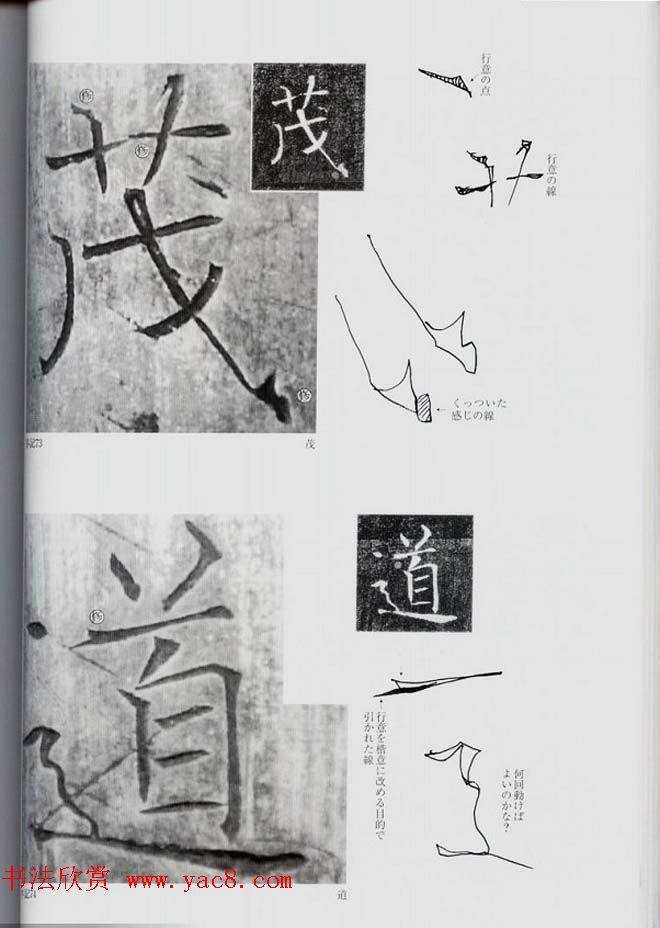 茂
茂
行意の点
行意の線
くっついた
感じの線
73
茂
道
道
行意を楷意に改める目的で
引かれた線
何回動けば
よいのかな?
书法欣赏 www.yac8.com
74
道